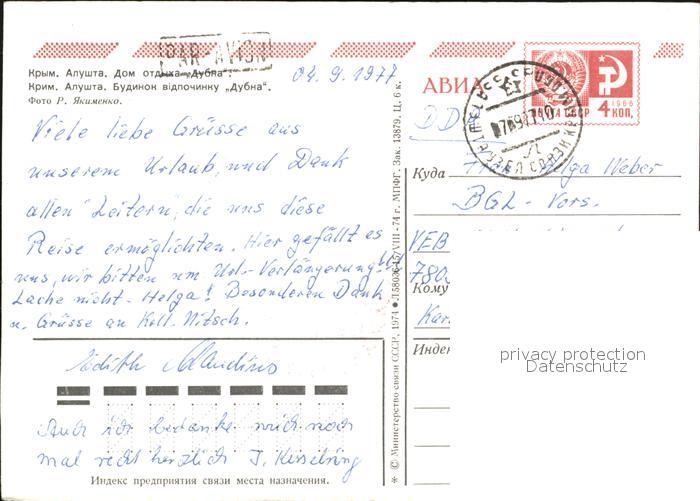 PAR-AVION
04.9.1977
Крым. Алушта. Дом отдыха „Дубна“.
Крим. Алушта. Будинок відпочинку „Дубна“.
Фото Р. Якименко.
АВИА
ПОЧТА СССР
1966
4 КОП.
Viele liebe Grüsse aus
unserem Urlaub, und Dank
allen "Leitern", die uns diese
Reise ermöglichten. Hier gefällt es
uns, wir bitten um Url.-Verlängerung!!!
Lache nicht - Helga! Besonderen Dank
u. Grüsse an Koll. Nitsch.
Edith
Auch ich bedanke mich noch
mal recht herzlich J.
Индекс предприятия связи места назначения.
* © Министерство связи СССР, 1974 ● Л 58036 15/VIII-74 г. МПФГ. Зак. 13879. Ц. 6 к.
DDR
Куда Frau Helga Weber
BGL-Vors.
VEB
Кому
Kar
Индек
privacy protection
Datenschutz